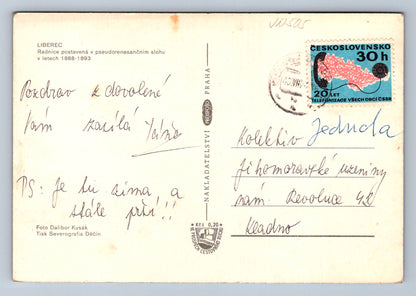 LIBEREC
Radnice postavená v pseudorenesančním slohu
v letech 1888-1893
Pozdrav z dovolené
Vám zasílá Jána
PS: Je tu zima a
stále prší!!
Foto Dalibor Kusák
Tisk Severografia Děčín
NAKLADATELSTVÍ PRAHA
ČESKOSLOVENSKO
30 h
20 LET
TELEFONIZACE VŠECH OBCÍ ČSSR
Kolektiv Jednota
Jihomoravské uzeniny
nám. Revoluce
Kladno